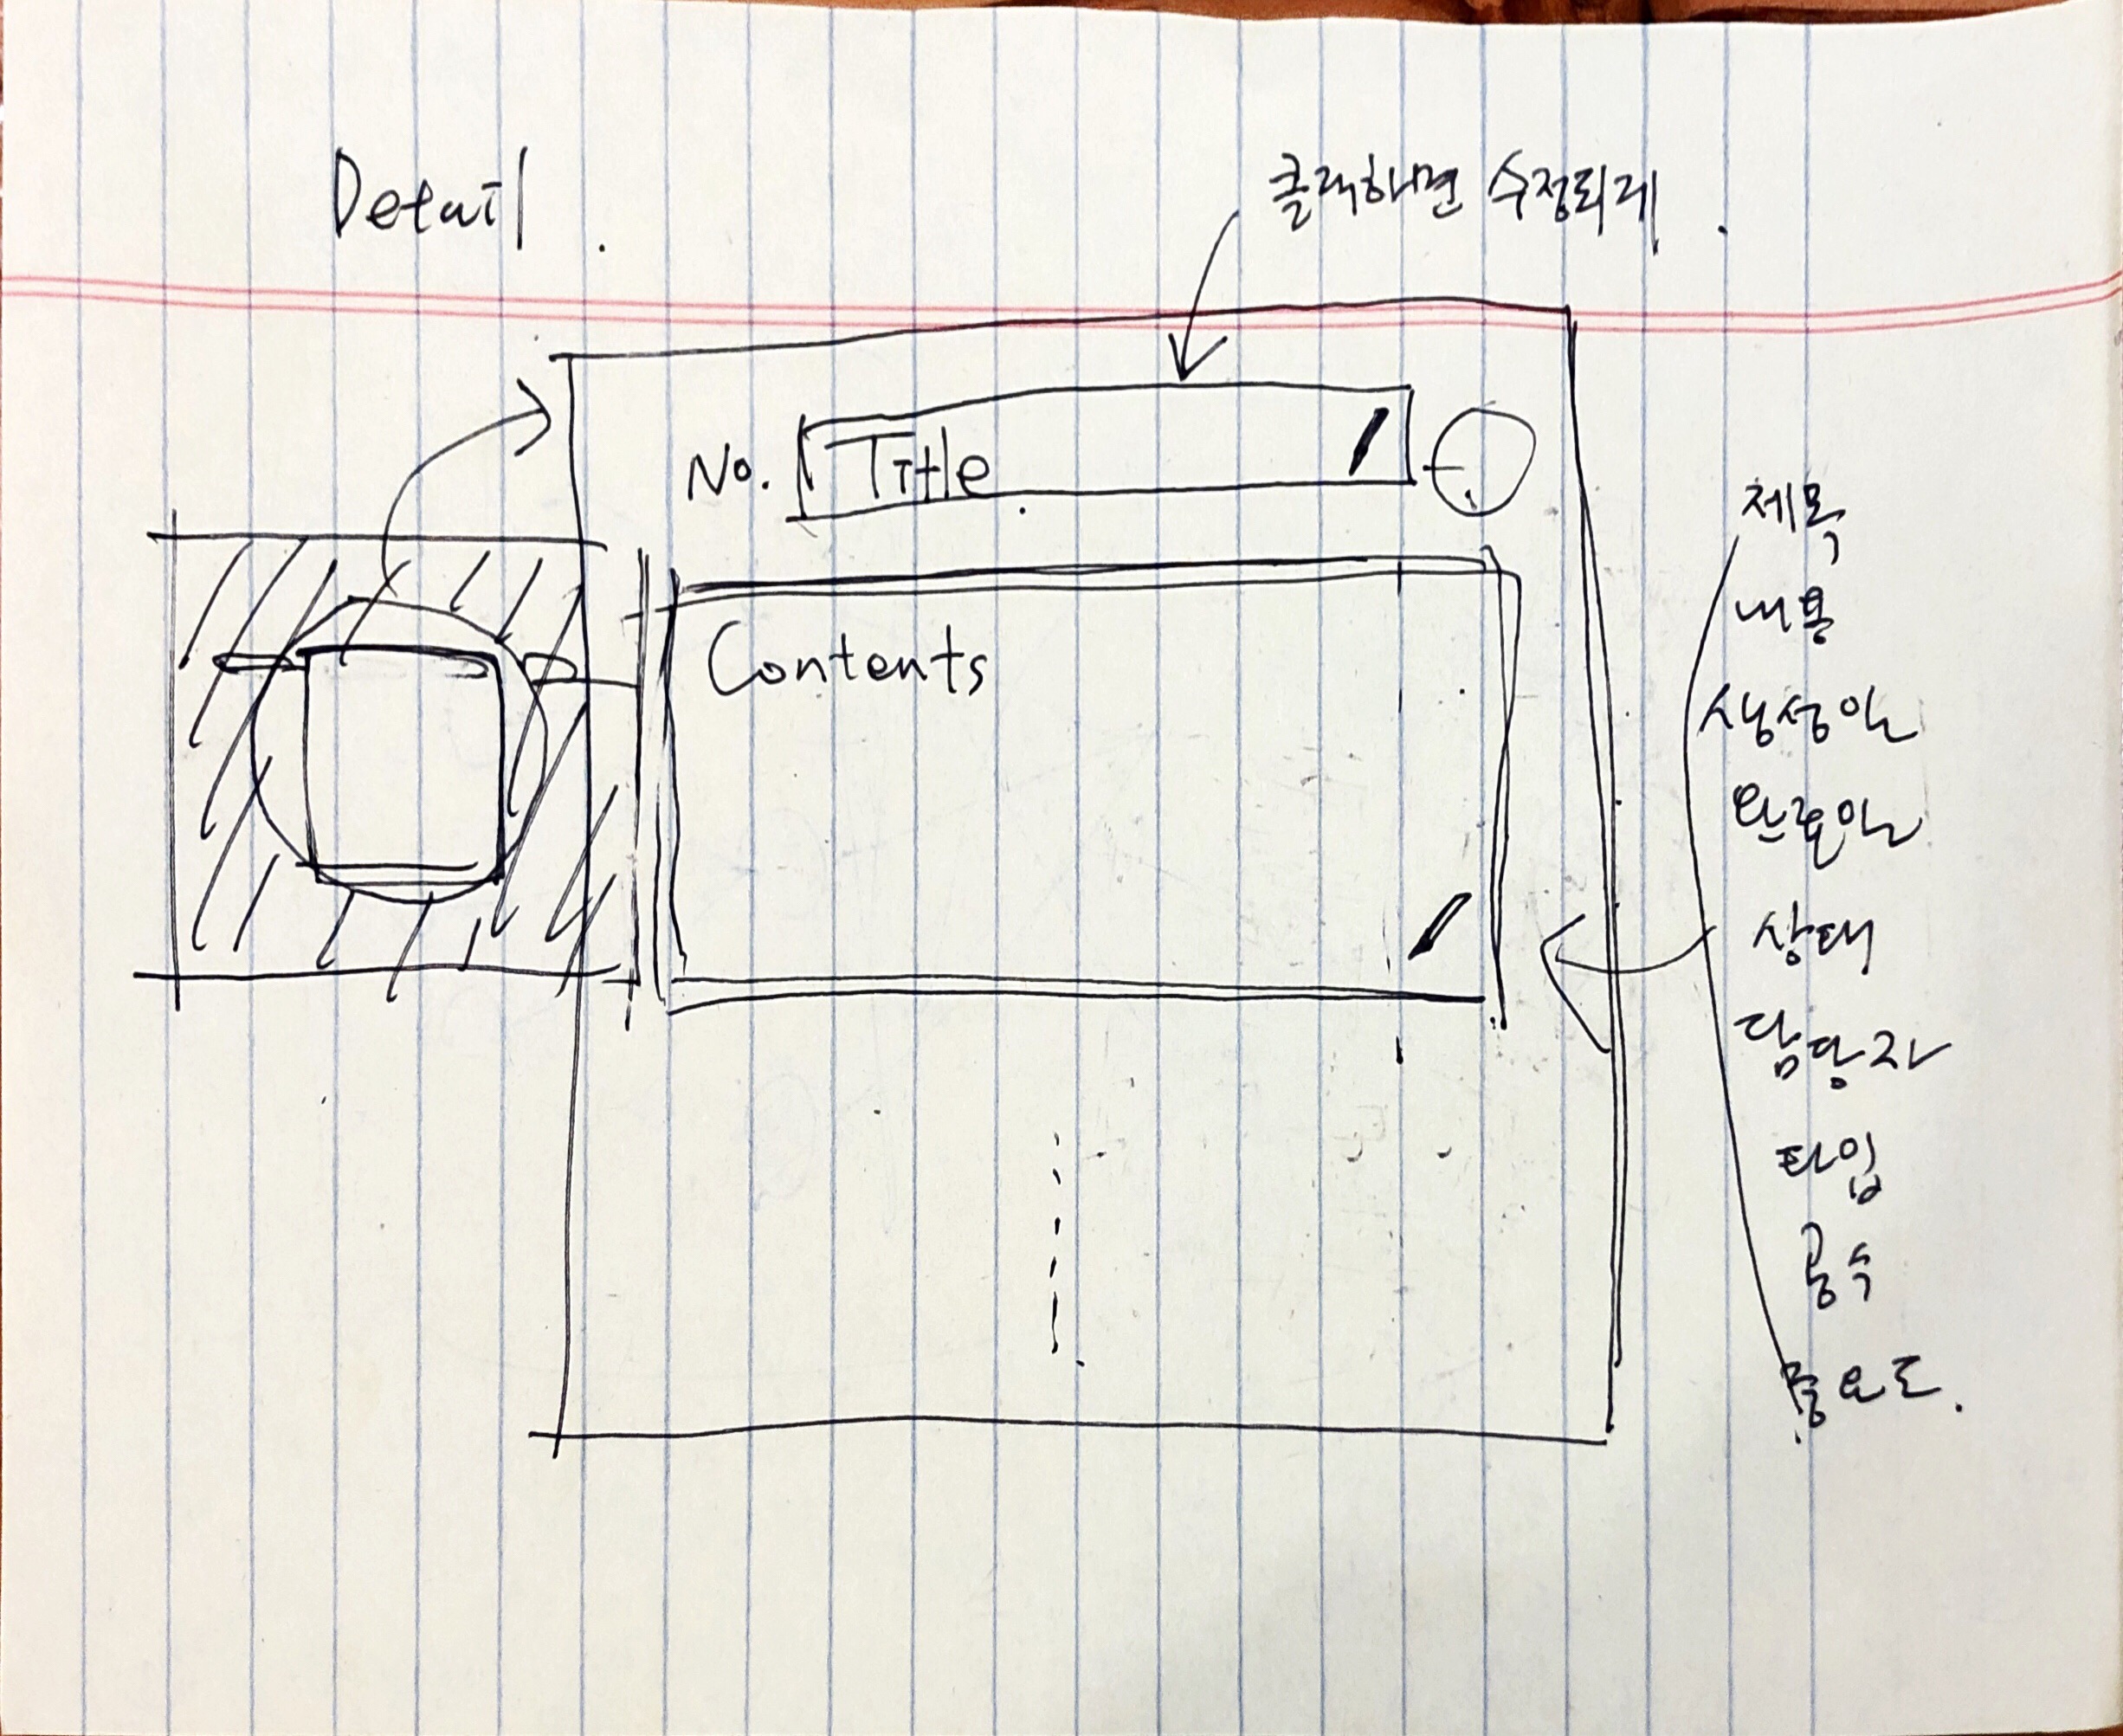 Detail
클릭하면 수정되게
No. Title
Contents
제목
내용
생성일
완료일
상태
담당자
타입
공수
중요도.